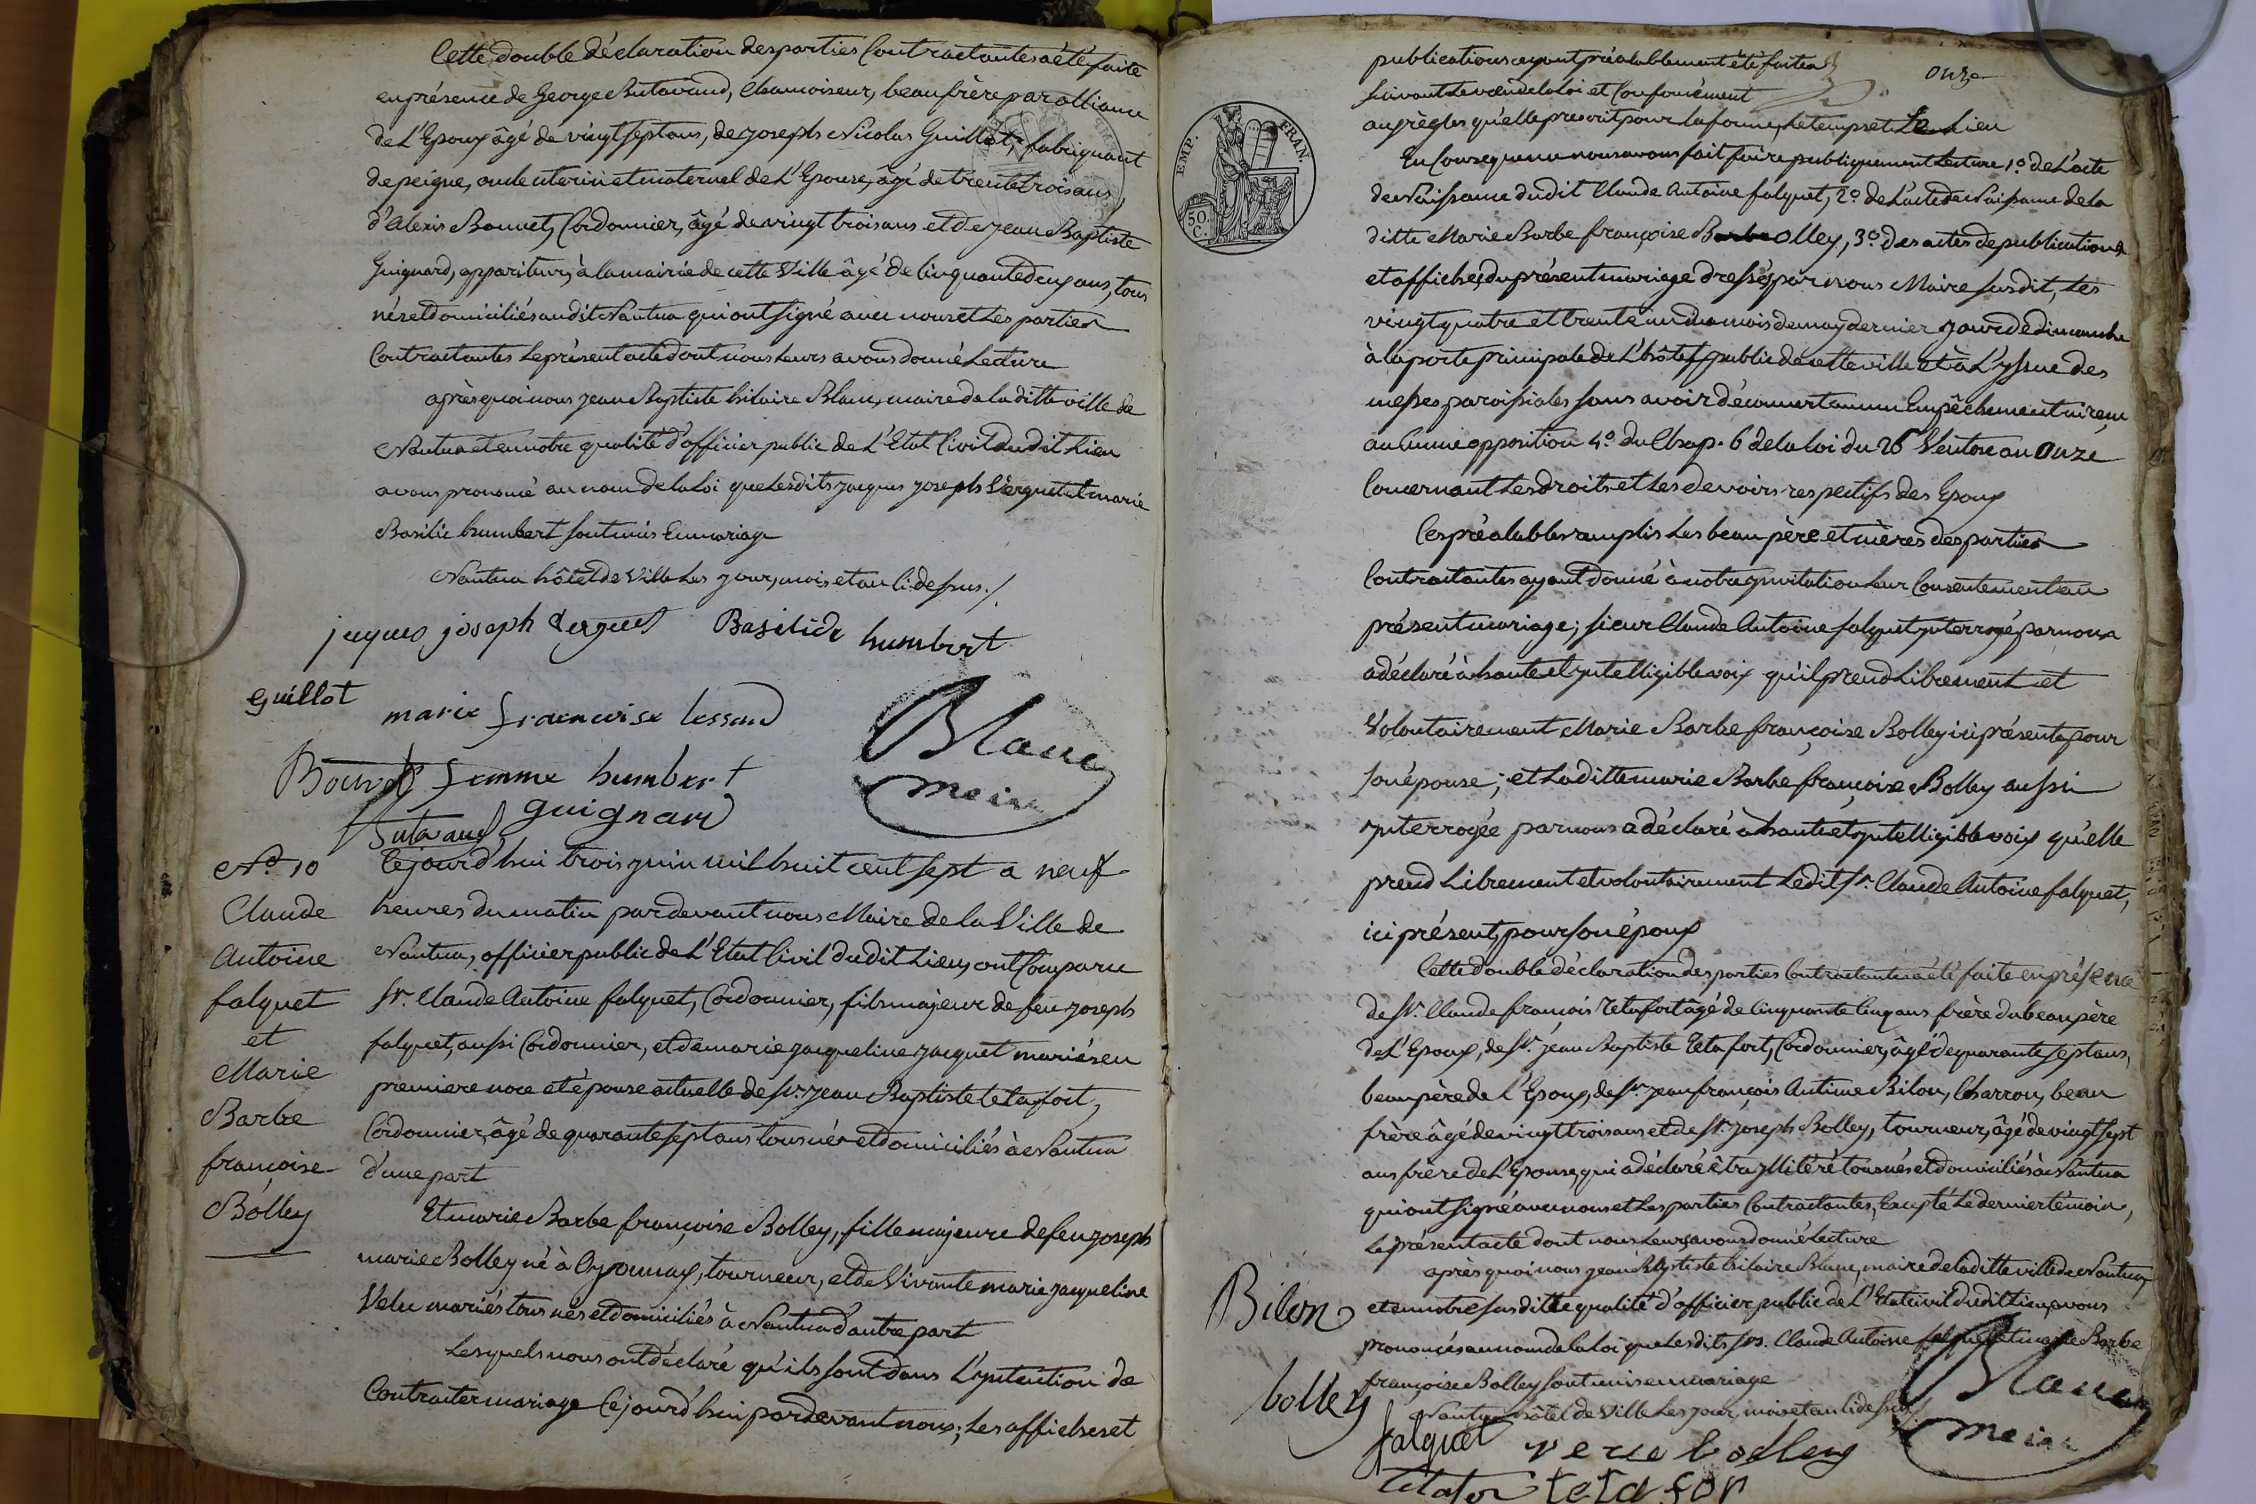 Cette double déclaration des parties Contractantes a été faite
en présence de George Butavand, Chamoiseur, beau frère par alliance
de L'Epoux âgé de vingt sept ans, de joseph Nicolas Guillot, fabriquant
de peigne, oncle uterin et maternel de L'Epouse, âgé de trente trois ans,
d'alexis Bonnet, Cordonnier, âgé de vingt trois ans et de jean Baptiste
Guignard, appariteur, à la mairie de cette Ville âgé de Cinquante deux ans, tous
nés et domiciliés au dit Nantua qui ont signé avec nous et Les parties
Contractantes Le présent acte dont nous Leurs avons donné Lecture
après quoi nous jean Baptiste hilaire Blanc, maire de la ditte ville de
Nantua et en notre qualité d'officier public de L'Etat Civil du dit Lieu
avons prononcé au nom de la Loi que Lesdits jacques joseph Verguet et marie
Basilie humbert sont unis En mariage
Nantua hôtel de Ville Les jour, mois et an Ci dessus ./.
jaques joseph verguet Basilide humbert
guillot
marie francoise lessard
Blanc
maire
femme humbert
guignard
Butavand
N.o 10
Claude
Antoine
falquet
et
Marie
Barbe
françoise
Bolley
Cejourd'hui trois juin mil huit cent sept a neuf
heures du matin par devant nous Maire de la Ville de
Nantua, officier public de L'Etat Civil du dit Lieu, ont Comparu
Sr. Claude Antoine falquet, Cordonnier, fils majeur de feu joseph
falquet, aussi Cordonnier, et de marie jacqueline jacquet mariés en
premiere noce et épouse actuelle de Sr. jean Baptiste tetafort,
Cordonnier, âgé de quarante sept ans tous nés et domiciliés à Nantua
d'une part
Et marie Barbe françoise Bolley, fille majeure de feu joseph
marie Bolley né à Oyonnax, tourneur, et de Vivante marie jacqueline
Velu mariés tous nés et domiciliés à Nantua d'autre part
Lesquels nous ont déclaré qu'ils sont dans L'yntention de
Contracter mariage Cejourd'hui par devant nous; Les affiches et
onze
publications ayant préalablement été faites
suivant Le voeu de la Loi et Conformément
aux règles qu'elle prescrit pour la forme, Le temps et Le Lieu
EMP. FRAN.
50. C.
En Consequence nous avons fait faire publiquement Lecture 1.o de L'acte
de Naissance dudit Claude Antoine falquet, 2.o de L'acte de Naissance de la
ditte Marie Barbe françoise Bolley, 3.o des actes de publications
et affiches du présent mariage dressés par nous Maire susdit, Les
vingt quatre et trente un du mois de may dernier jour de dimanche
à la porte principale de L'hôtel public de cette ville et à L'yssue des
messes paroissiales sans avoir découvert aucun Empêchement ni reçu
aucune opposition 4.o du Chap. 6 de la loi du 26 Ventose an Onze
Concernant Les droits et Les devoirs respectifs des Epoux
Ces préalables remplis Les beau père et mères des parties
Contractantes ayant donné à notre ynvitation Leur Consentement au
présent mariage; sieur Claude Antoine falquet ynterrogé par nous
a déclaré à haute et yntelligible voix qu'il prend Librement et
Volontairement Marie Barbe françoise Bolley ici présente pour
son épouse; et La ditte marie Barbe françoise Bolley aussi
ynterrogée par nous a déclaré à haute et yntelligible voix qu'elle
prend Librement et volontairement Ledit Sr. Claude Antoine falquet,
ici présent, pour son époux
Cette double déclaration des parties Contractantes a été faite en présence
de Sr. Claude françois Tetafort âgé de Cinquante Cinq ans frère du beau père
de L'Epoux, de Sr. jean Baptiste Tetafort, Cordonnier, âgé de quarante sept ans,
beau père de L'Epoux, de Sr. jean françois Antime Bilon, Charron, beau
frère âgé de vingt trois ans et de Sr. joseph Bolley, tourneur, âgé de vingt sept
ans frère de L'Epouse, qui a déclaré être yllitéré tous nés et domiciliés à Nantua
qui ont signé avec nous et Les parties Contractantes, Excepté Le dernier témoin,
Le présent acte dont nous Leurs avons donné Lecture
après quoi nous jean Baptiste hilaire Blanc, maire de la ditte ville de Nantua,
et en notre susditte qualité d'officier public de L'Etat civil dudit Lieu, avons
prononcés au nom de la Loi que Lesdits Srs. Claude Antoine falquet et marie Barbe
françoise Bolley sont unis en mariage
Nantua hôtel de Ville Les jour, mois et an Ci dessus
Bilon
bolley
falquet
bolley
Blanc
maire
tetafor tetafor